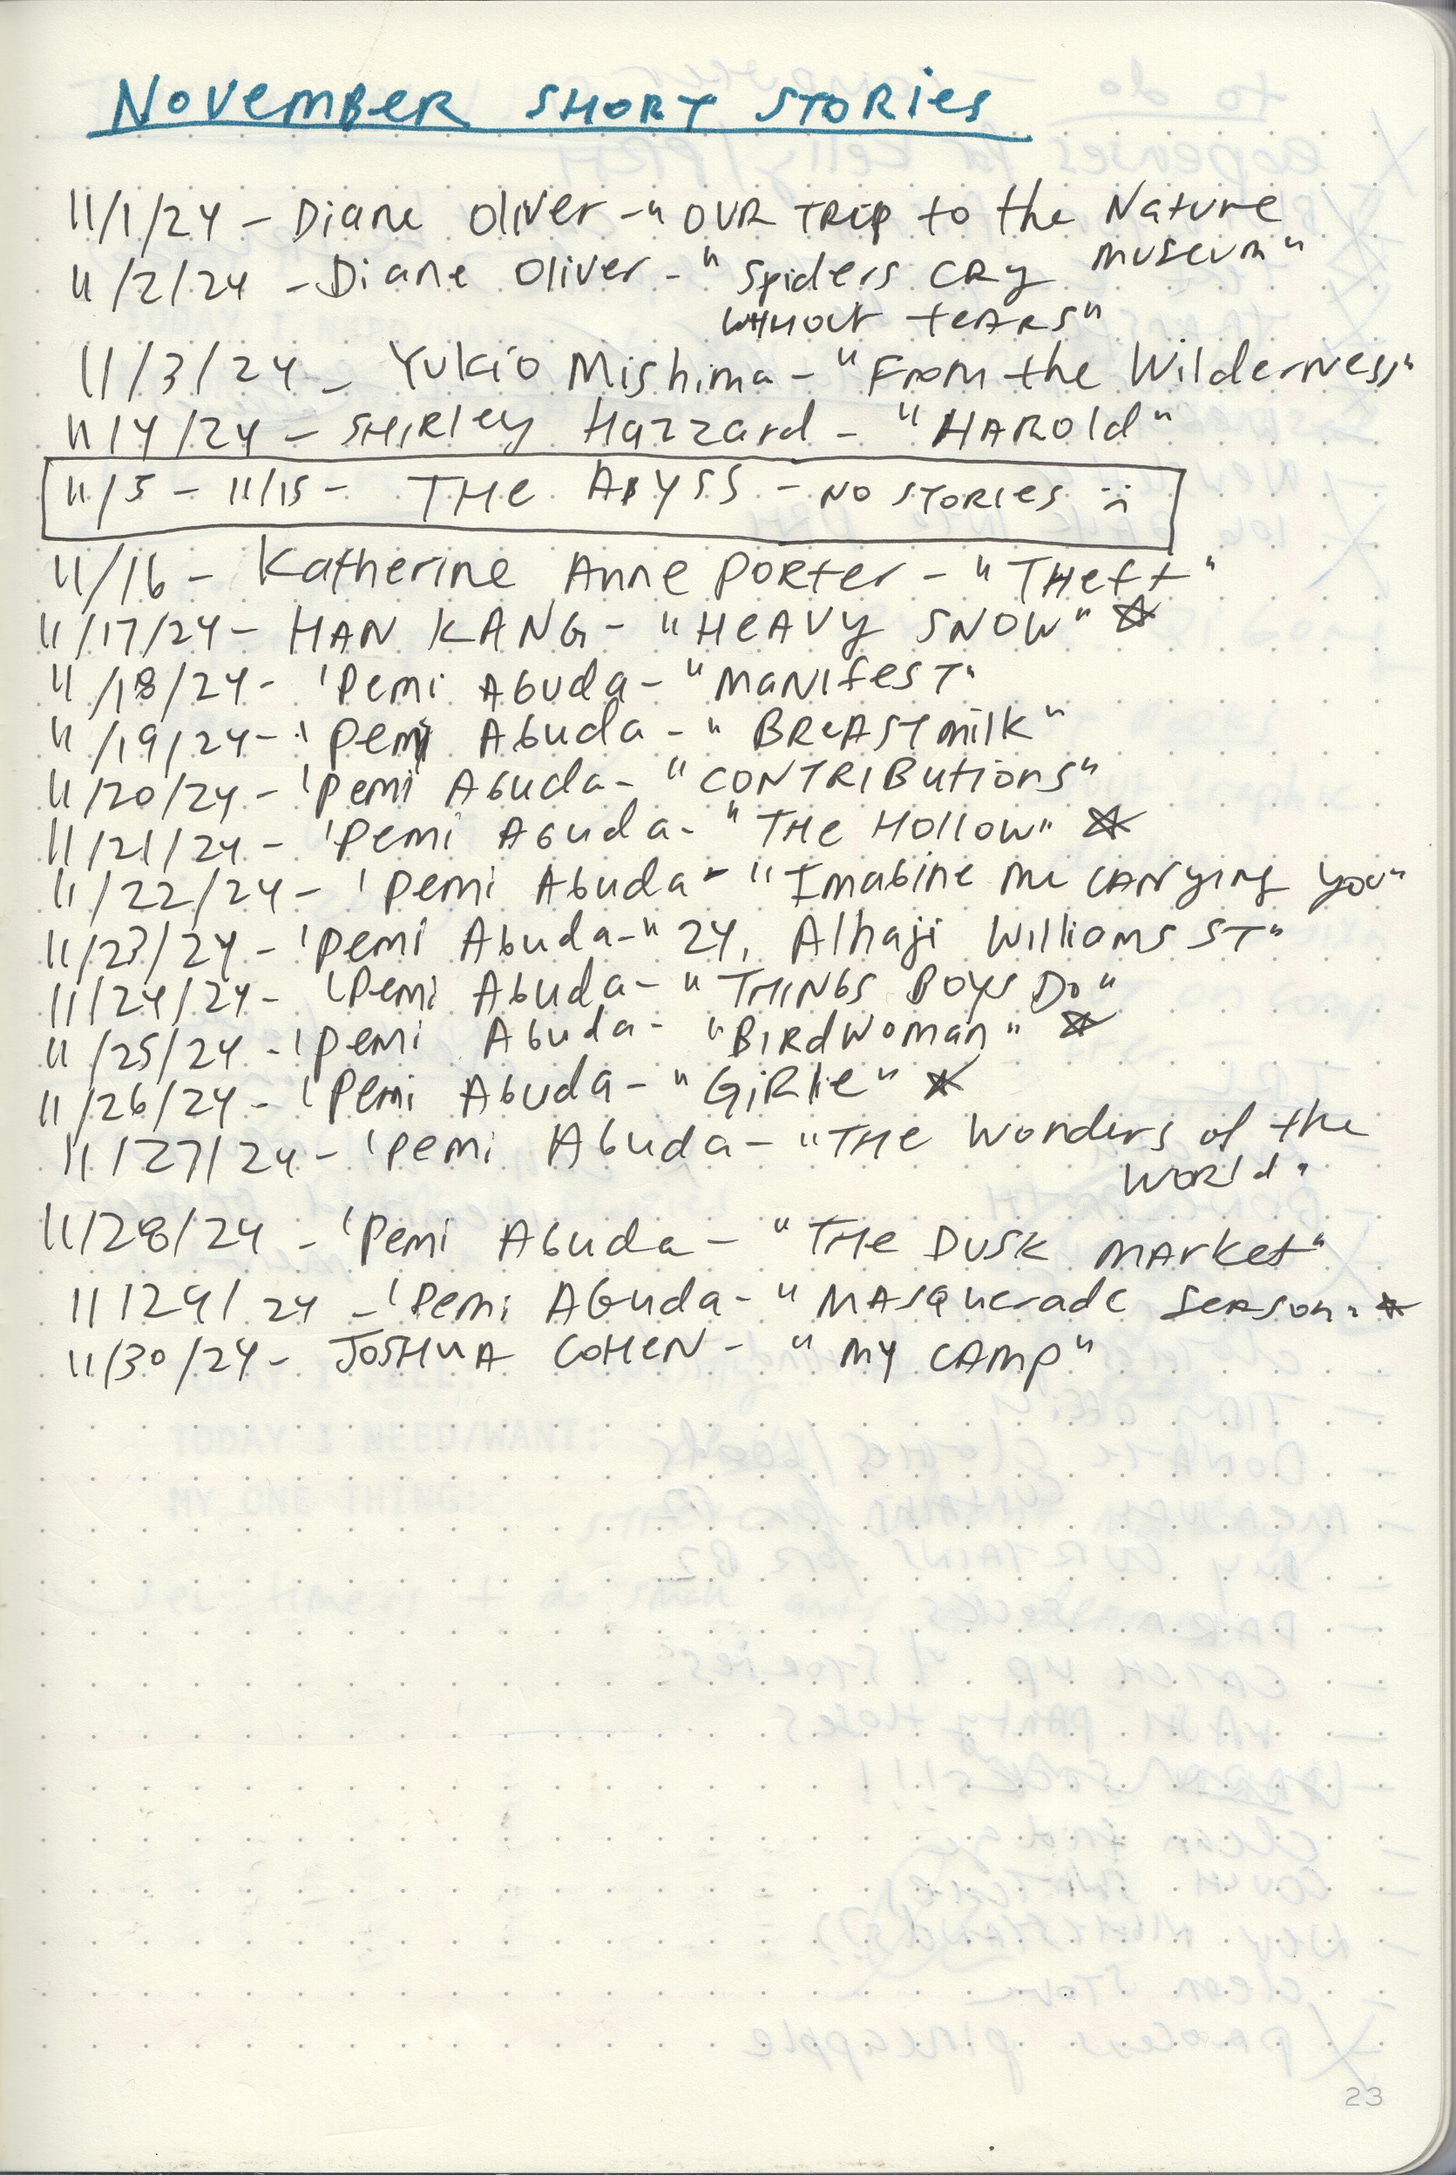 NOVEMBER SHORT STORIES
11/1/24 - Diane Oliver - "OUR TRIP to the Nature
museum"
11/2/24 - Diane Oliver - "Spiders CRY
without tears"
11/3/24 - Yukio Mishima - "From the Wilderness"
11/4/24 - SHIRley Hazzard - "HAROld"
11/5 - 11/15 - THE ABYSS - NO STORIES :(
11/16 - Katherine Anne PORter - "THeft"
11/17/24 - HAN KANG - "HEAVY SNOW" ☆
11/18/24 - 'Pemi Aguda - "MANIfEST"
11/19/24 - 'Pemi Aguda - "BREASTmilk"
11/20/24 - 'Pemi Aguda - "CONTRIButions"
11/21/24 - 'Pemi Aguda - "THE HOllOW" ☆
11/22/24 - 'Pemi Aguda - "Imagine me CARRYING you"
11/23/24 - 'Pemi Aguda - "24, Alhaji Williams ST"
11/24/24 - 'Pemi Aguda - "THINGS BOYS DO"
11/25/24 - 'Pemi Aguda - "BIRDWOMAN" ☆
11/26/24 - 'Pemi Aguda - "GIRlie" ☆
11/27/24 - 'Pemi Aguda - "THE Wonders of the
WORld"
11/28/24 - 'Pemi Aguda - "THE DUSK MARket"
11/29/24 - 'Pemi Aguda - "MASquerade SEASON" ☆
11/30/24 - JOSHUA COHEN - "MY CAMP"
TODAY I NEED/WANT:
MY ONE THING:
23